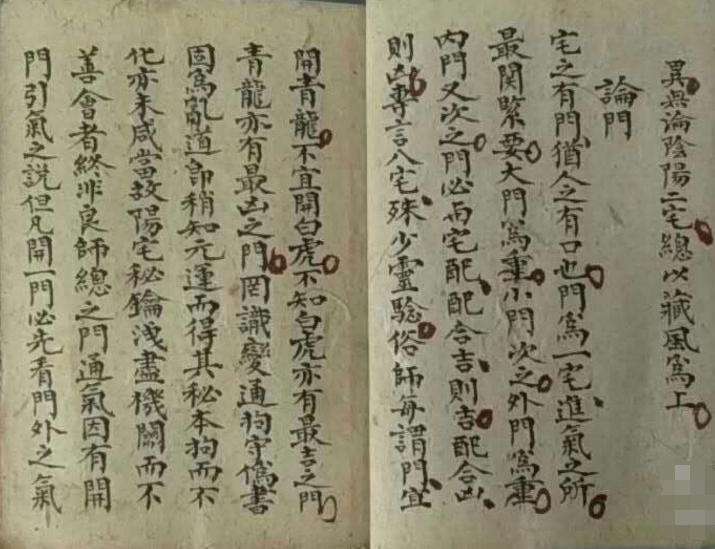 異無論陰陽二宅總以藏風爲上
論門
宅之有門猶人之有口也門爲一宅進氣之所
最関緊要大門爲重小門次之外門爲重
内門又次之門必而宅配配合吉則吉配合凶
則凶專言八宅殊少靈驗俗師每謂門宜
開青龍不宜開白虎不知白虎亦有最吉之門
青龍亦有最凶之門罔識變通狗守僞書
固爲亂道即稍知元運而得其秘本狗而不
化亦未咸當故陽宅秘鑰洩盡機關而不
善會者終非良師總之門通氣因有開
門引氣之說但凡開一門必先看門外之氣